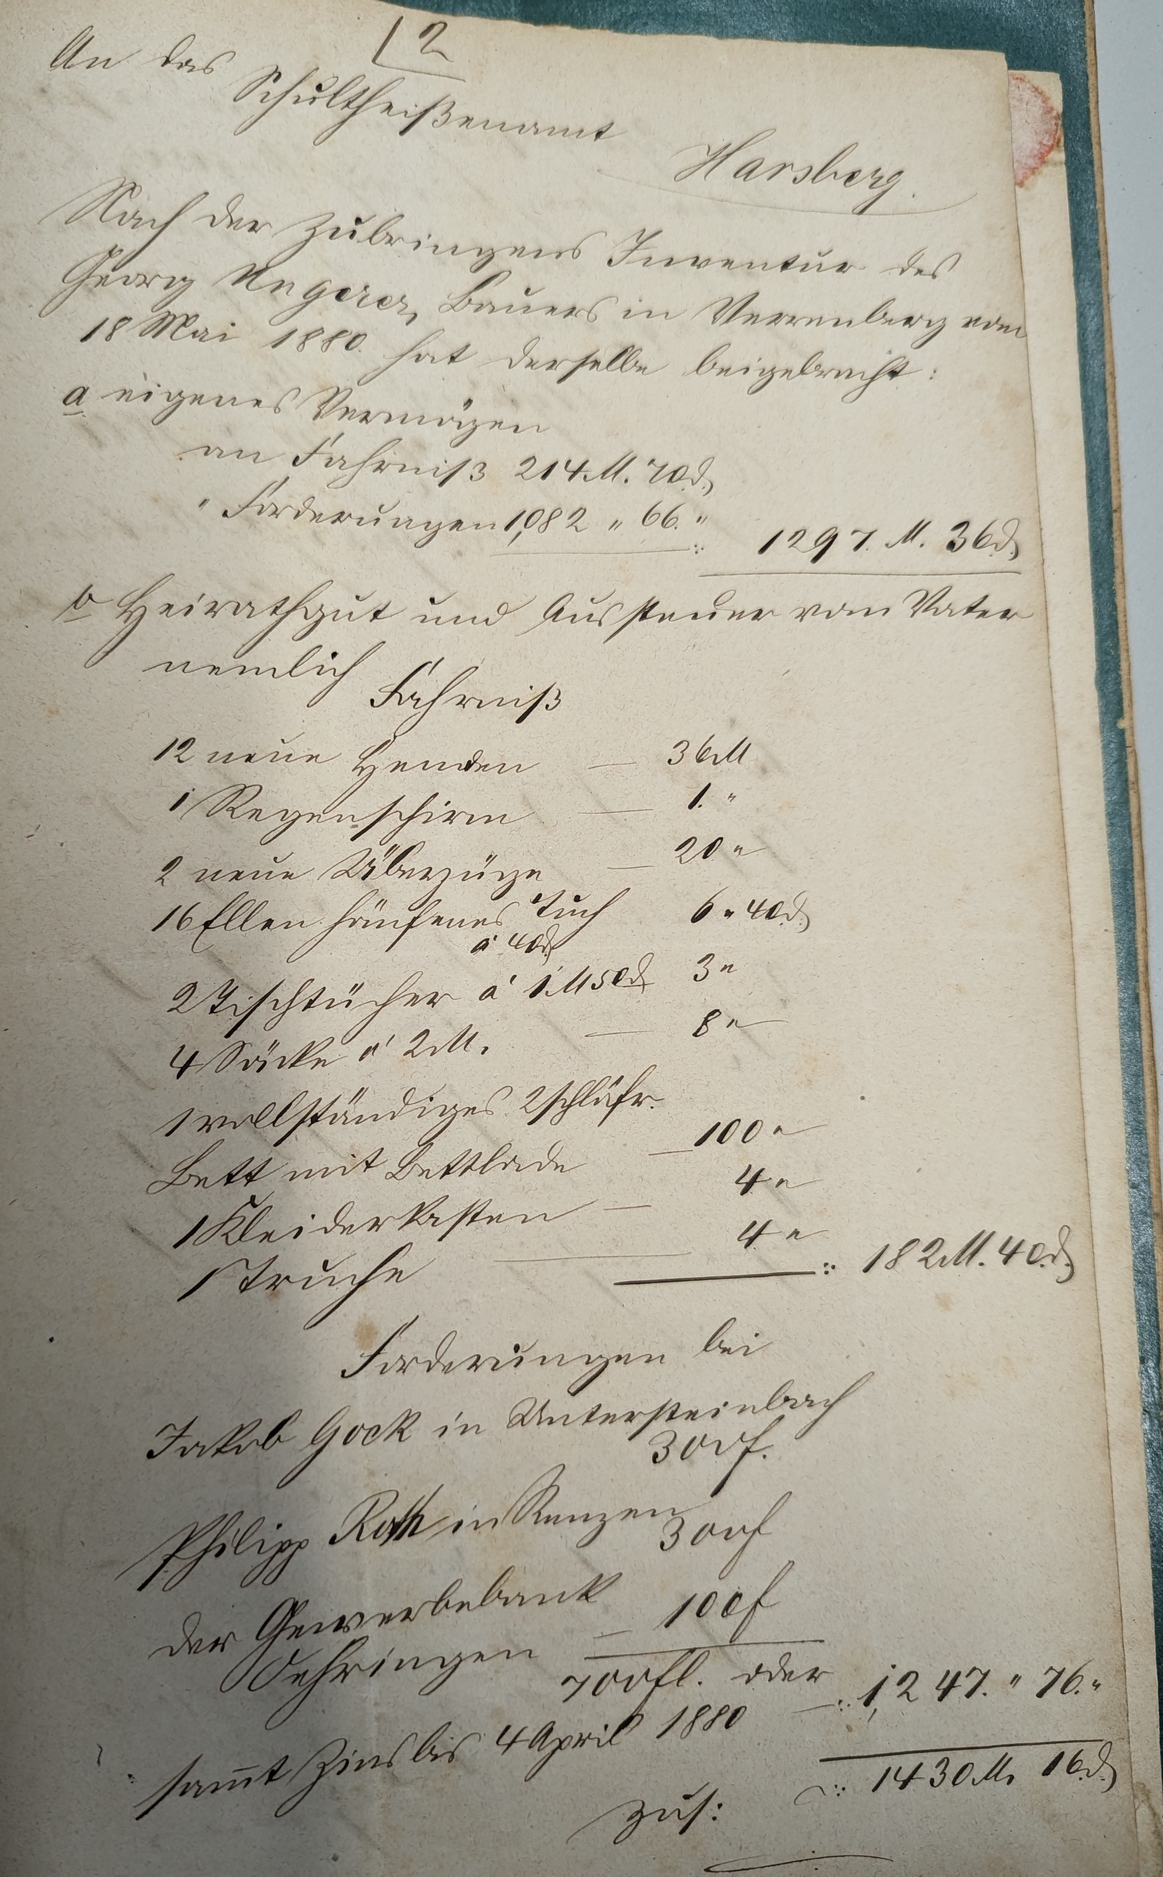 2
An das
Schultheißenamt
Harsberg.
Nach der Zubringens Inventur des
Georg Ungerer, Bauers in Verrenberg vom
18 Mai 1880. hat derselbe beigebracht:
a eigenes Vermögen
an Fahrniß 214 M. 70 d.
" Forderungen 1,082 " 66. "
1297. M. 36 d.
b Heirathgut und Aussteuer vom Vater
nemlich
Fahrniß
12 neue Hemden — 36 M
1 Regenschirm — 1. "
2 neue Überzüge — 20 "
16 Ellen hänfenes Tuch 6 " 40 d.
à 40 d
2 Tischtücher à 1 M 50 d 3 "
4 Säcke à 2 M. — 8 "
1 vollständiges 2schläfr.
Bett mit Bettlade — 100 "
1 Kleiderkasten — 4 "
1 Truche — 4 "
182 M. 40 d.
Forderungen bei
Jakob Gock in Untersteinbach
300 f.
Philipp Roth in Renzen
300 f
der Gewerbebank
Oehringen — 100 f
700 fl. oder
sammt Zins bis 4 April 1880 — 1,247. " 76. "
zus: 1430 M. 16 d.